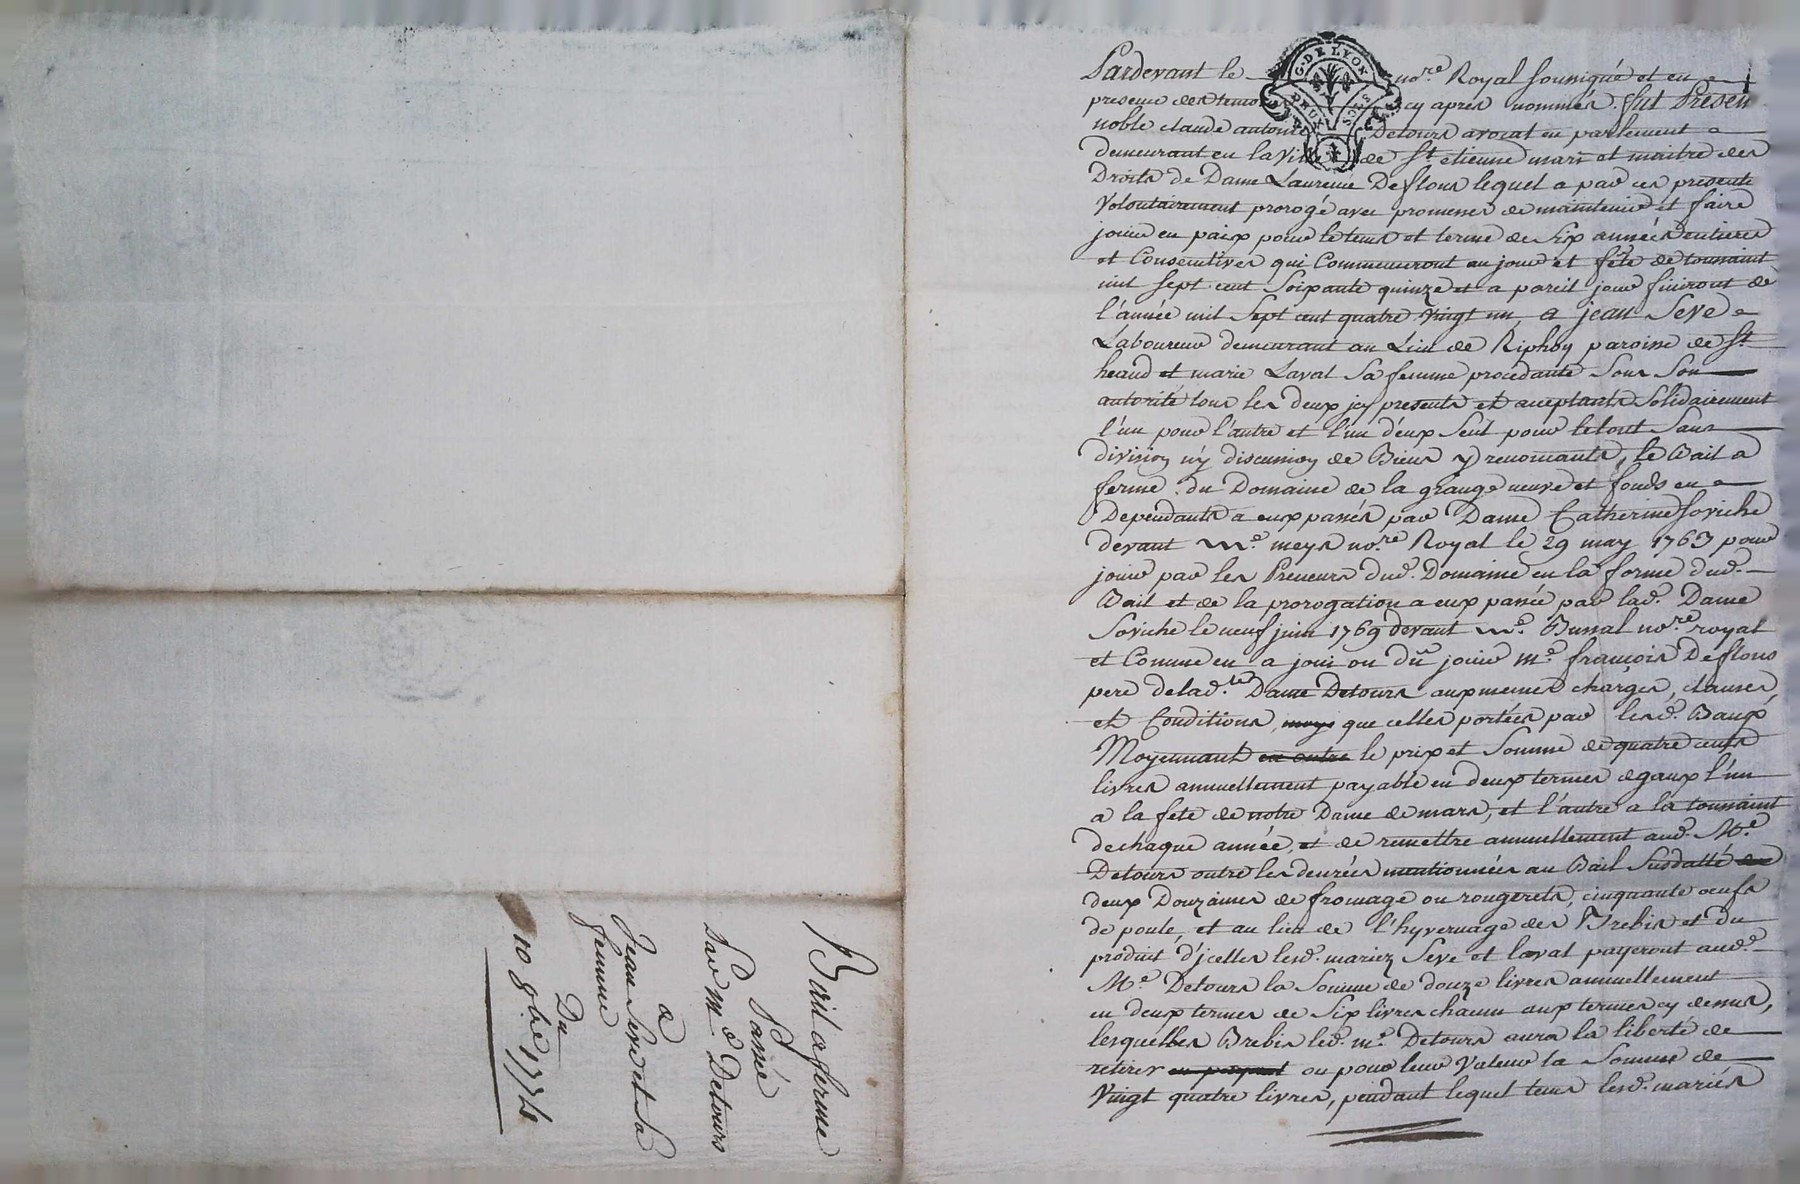 Bail a ferme
Passé
Par Mr. Detours
a
Jean Seve et Sa
femme
Du
10 8bre 1774
G. DE LYON
DEUX SOLS
Pardevant le nore. Royal soussigné et en
presence des temoins cy après nommés. fut Present
noble claude antoine Detours avocat en parlement
demeurant en la Ville de St. etienne mary et maitre des
Droits de Dame Laurence Deflous lequel a par ces presente
Volontairement prorogé avec promesse de maintenir et faire
jouir en paix pour le tems et terme de Six années entieres
et Consecutives qui Commenceront au jour et fête de toussaint
mil sept cent soixante quinze et a pareil jour finiront de
l'année mil Sept cent quatre vingt un, a jean Seve
Laboureur demeurant au Lieu de Riphoy paroisse de St.
heand et marie Laval Sa femme procedante Sous Son
autorité tous les deux jcy presents et aceptants Solidairement
l'un pour l'autre et l'un d'eux Seul pour letout Sans
division n'y discussion de Biens y renoncants, le Bail a
ferme du Domaine de la grange neuve et fonds en
Dependants a eux passés par Dame Catherine Soviche
devant Me. meys nore. Royal le 29 may 1763 pour
jouir par les Preneurs dud. Domaine en la forme dud.
Bail et de la prorogation a eux passée par lad. Dame
Soviche le neuf juin 1769 devant Me. Bussal nore. royal
et Comme en a joui ou dû jouir me. françois Deflous
pere delad.te Dame Detours aux memes charges, clauses,
et Conditions, que celles portées par lesd. Baux
Moyennant le prix et Somme de quatre cents
livres annuellement payable en deux termes egaux l'un
a la fete de notre Dame de mars, et l'autre a la toussaint
de chaque année, et de remettre annuellement aud. Me.
Detours outre les denrées mentionnées au Bail Susdatté
deux Douzaines de fromage ou rougerets, cinquante oeufs
de poule, et au lieu de l'hyvernage des Brebis et du
produit d'jcelles lesd. mariez Seve et laval payeront aud.
Me. Detours la Somme de douze livres annuellement
en deux termes de Six livres chacun aux termes cy dessus,
lesquelles Brebis led. me. Detours aura la liberté de
retirer ou pour leur Valeur la Somme de
Vingt quatre livres, pendant lequel tems lesd. mariés